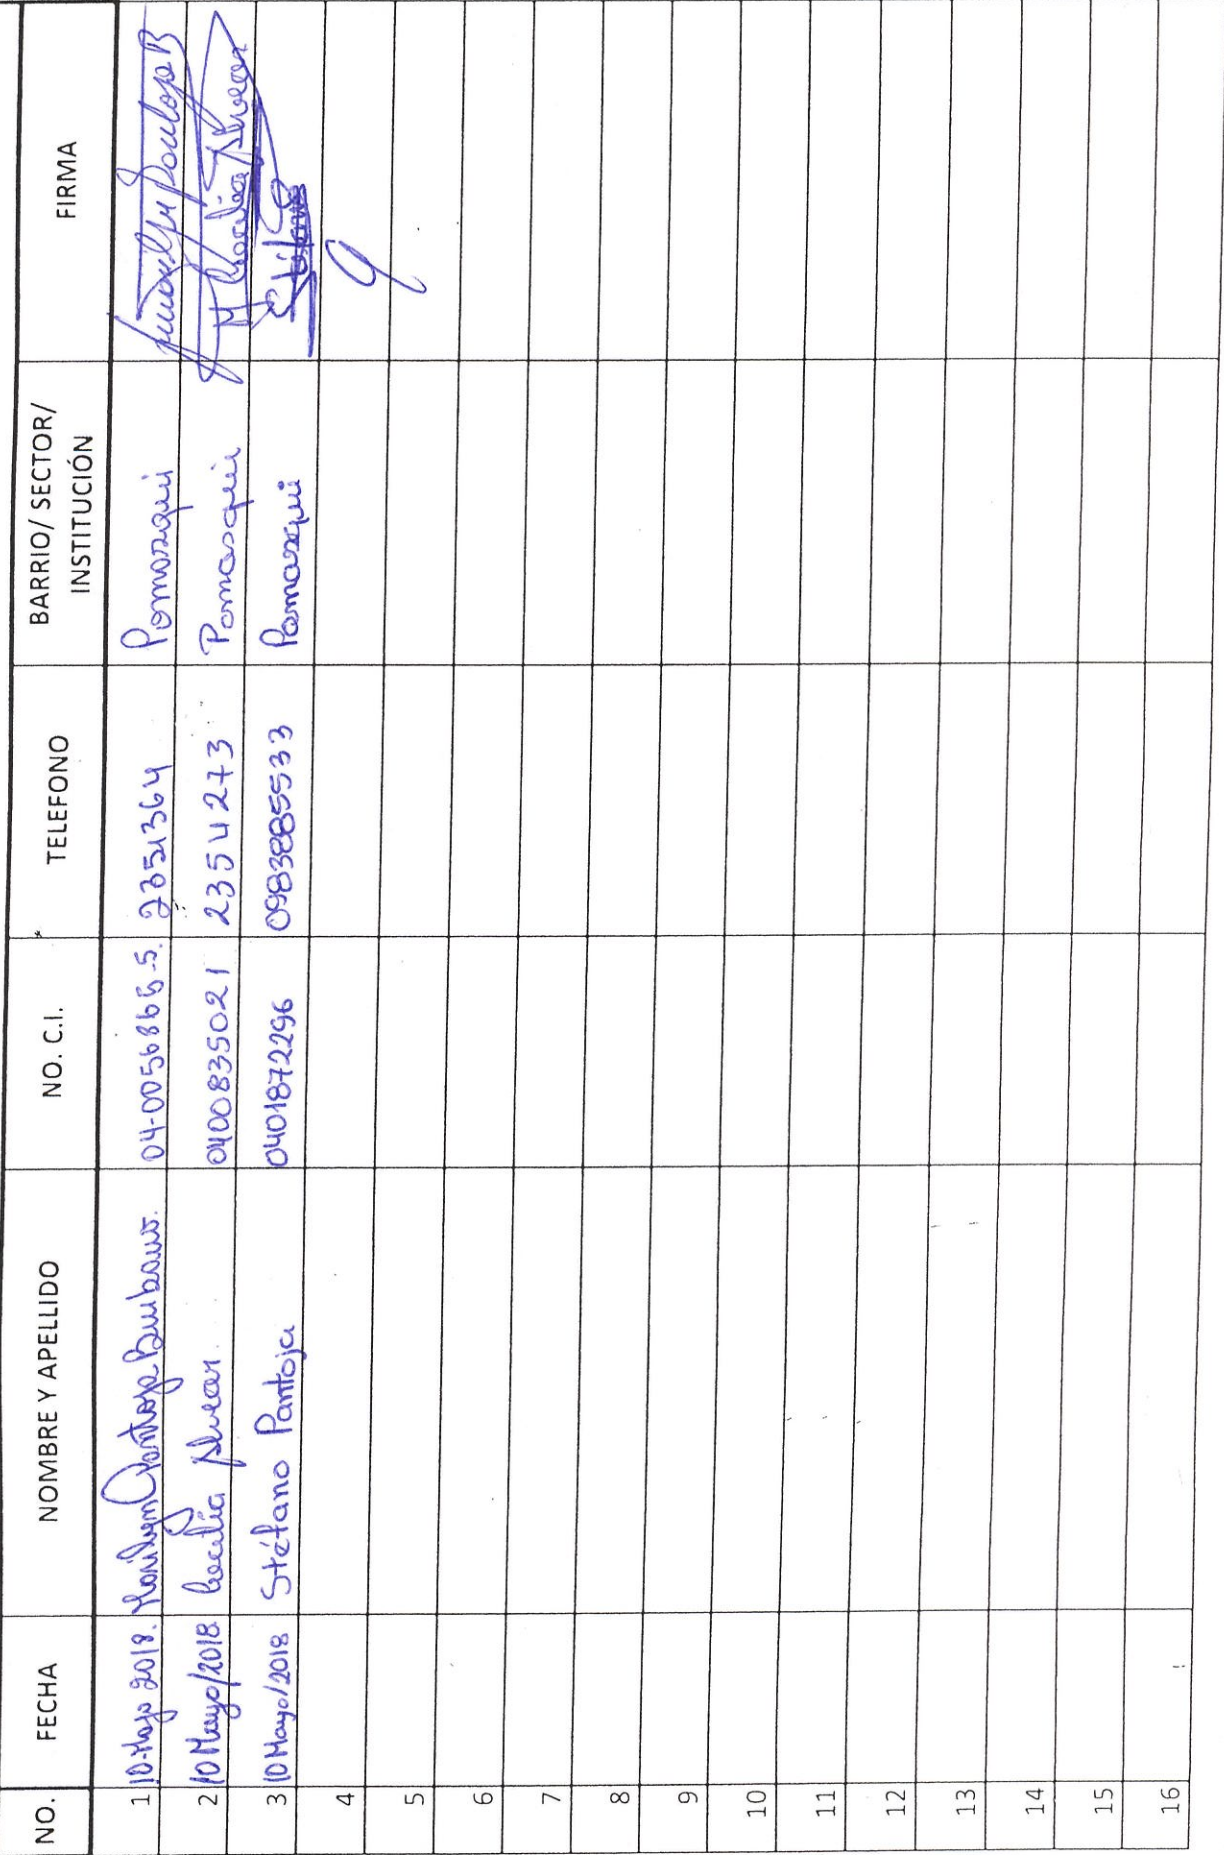 NO. FECHA NOMBRE Y APELLIDO NO. C.I. TELEFONO BARRIO/ SECTOR/ INSTITUCIÓN FIRMA
1 10-Mayo 2018. Marilyn Pantoja Burbano. 04-0056866-5. 2351364 Pomasqui
2 10 Mayo/2018 Cecilia 0400835021 2354273 Pomasqui M Cecilia
3 10 Mayo/2018 Stéfano Pantoja 0401872296 0983885533 Pomasqui Stéfano
4
5
6
7
8
9
10
11
12
13
14
15
16